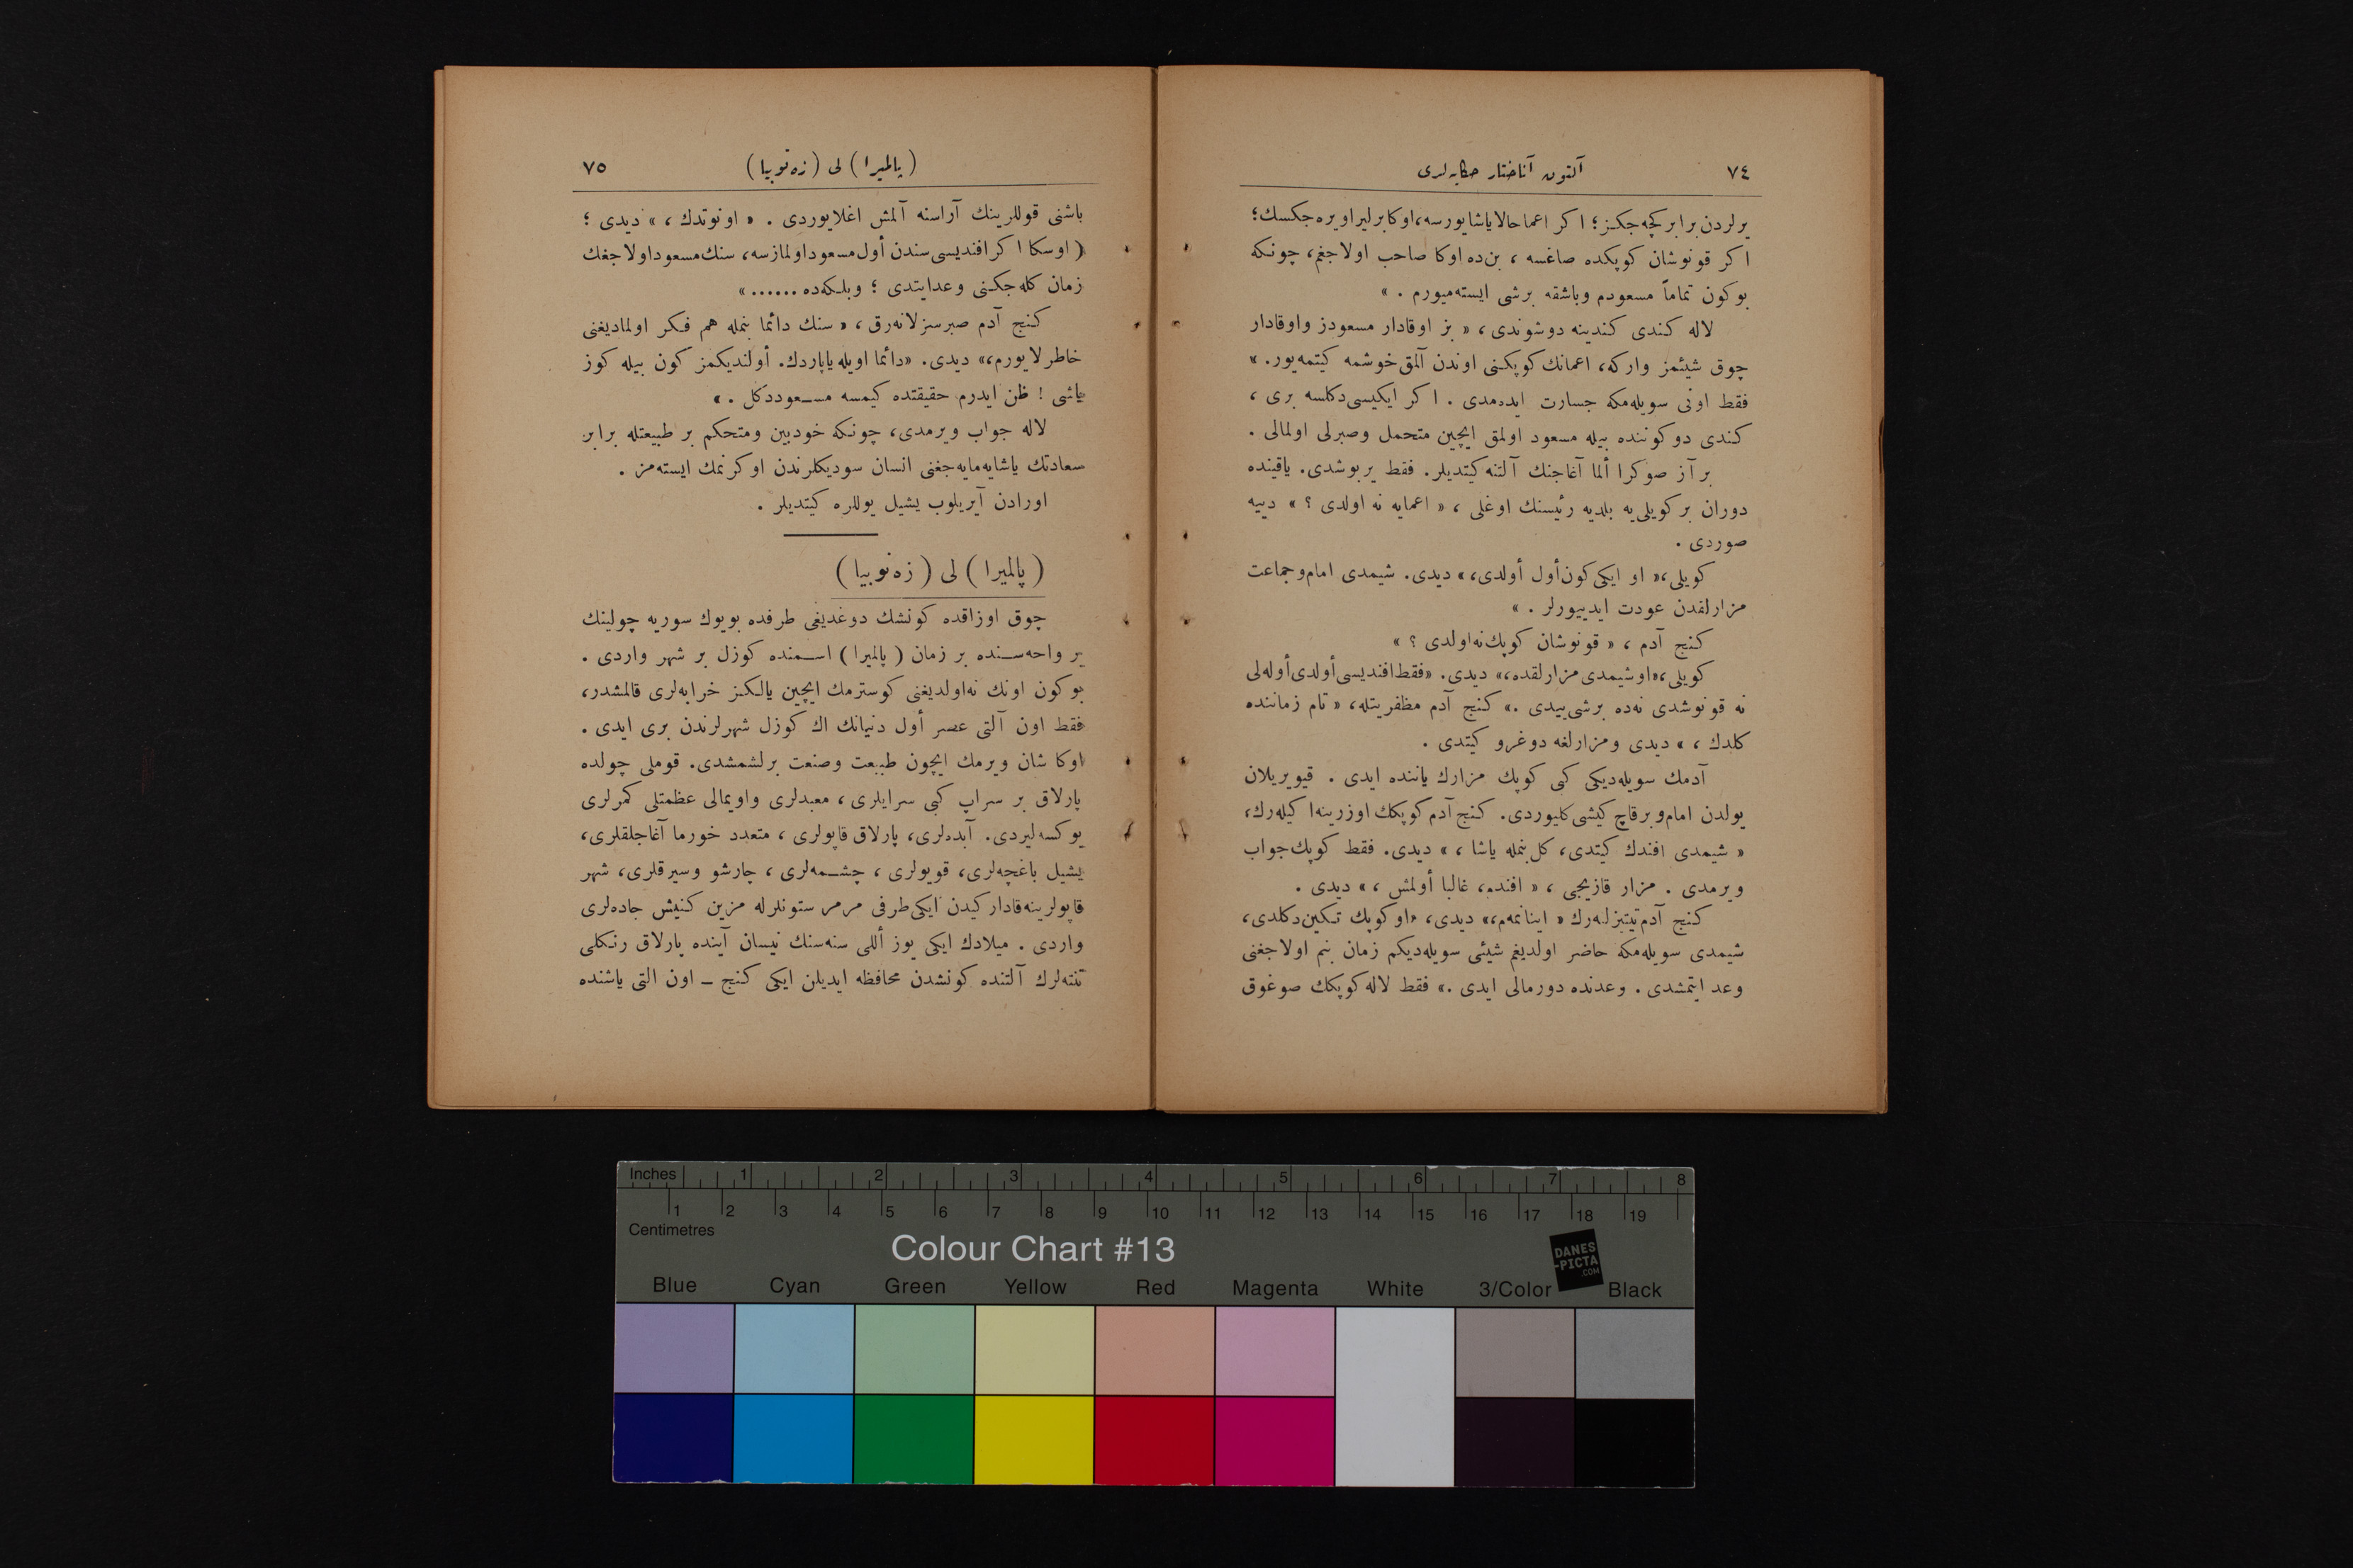 ٧٤
آلتون آناختار حكايه‌لرى
يرلردن برابر كچه‌جكز؛ اكر اعما حالا ياشايورسه، اوكا برليراويره‌جكسك؛
اكر قونوشان كوپكده صاغسه ، بن‌ده اوكا صاحب اولاجغم، چونكه
بوكون تماماً مسعودم وباشقه برشى ايسته‌ميورم . »
لاله كندى كندينه دوشوندى، « بز اوقادار مسعودز واوقادار
چوق شيئمز واركه، اعمانك كوپكنى اوندن آلمق خوشمه كيتمه‌يور. »
فقط اونى سويله‌مكه جسارت ايده‌مدى . اكر ايكيسى‌دكلسه برى ،
كندى دوكوننده بيله مسعود اولمق ايچين متحمل وصبرلى اولمالى .
بر آز صوكرا ألما آغاجنك آلتنه كيتديلر. فقط يربوشدى. ياقينده
دوران بر كويلى‌يه بلديه رئيسنك اوغلى ، « اعمايه نه اولدى ؟ » دييه
صوردى .
كويلى، « او ايكى كون أول أولدى، » ديدى. شيمدى امام‌وجماعت
مزارلقدن عودت ايدييورلر . »
كنج آدم ، « قونوشان كوپك نه‌اولدى ؟ »
كويلى، « اوشيمدى مزارلقده، » ديدى. « فقط‌افنديسى‌أولدى‌أوله‌لى
نه قونوشدى نه‌ده برشى‌ييدى .» كنج آدم مظفريتله، « تام زماننده
كلدك ، » ديدى ومزارلغه دوغرو كيتدى .
آدمك سويله‌ديكى كبى كوپك مزارك ياننده ايدى . قيويريلان
يولدن امام‌وبرقاچ كيشى‌كليوردى. كنج آدم كوپكك اوزرينه‌اكيله‌رك،
« شيمدى افندك كيتدى، كل‌بنمله ياشا ، » ديدى. فقط كوپك جواب
ويرمدى . مزار قازيجى ، « افندم، غالبا أولمش ، » ديدى .
كنج آدم تيتيزلنه‌رك « اينانمه‌م،» ديدى، «اوكوپك تكين‌دكلدى،
شيمدى سويله‌مكه حاضر اولديغم شيئى سويله‌ديكم زمان بنم اولاجغنى
وعد ايتمشدى . وعدنده دورمالى ايدى .» فقط لاله كوپكك صوغوق
(پالميرا) لى (زه‌نوبيا)
٧٥
باشنى قوللرينك آراسنه آلمش اغلايوردى . « اونوتدك ، » ديدى ؛
( اوسكا اكر افنديسى سندن أول مسعوداولمازسه، سنك مسعوداولاجغك
زمان كله‌جكنى وعدايتدى ؛ وبلكه‌ده ...... »
كنج آدم صبرسزلانه‌رق ، « سنك دائما بنمله هم فكر اولماديغنى
خاطرلايورم،» ديدى. «دائما اويله ياپاردك. أولنديكمز كون بيله كوز
ياشى ! ظن ايدرم حقيقتده كيمسه مسعوددكل . »
لاله جواب ويرمدى، چونكه خودبين ومتحكم بر طبيعتله برابر
سعادتك ياشايه‌مايه‌جغنى انسان سوديكلرندن اوكرنمك ايسته‌مز .
اورادن آيريلوب يشيل يوللره كيتديلر .
(پالميرا) لى (زه‌نوبيا)
چوق اوزاقده كونشك دوغديغى طرفده بويوك سوريه چولينك
بر واحه‌سنده بر زمان (پالميرا) اسمنده كوزل بر شهر واردى .
بوكون اونك نه‌اولديغنى كوسترمك ايچين يالكز خرابه‌لرى قالمشدر،
فقط اون آلتى عصر أول دنيانك اك كوزل شهرلرندن برى ايدى .
اوكا شان ويرمك ايچون طبيعت وصنعت برلشمشدى. قوملى چولده
پارلاق بر سراب كبى سرايلرى ، معبدلرى واويمالى عظمتلى كمرلرى
يوكسه‌ليردى. آبده‌لرى، پارلاق قاپولرى ، متعدد خورما آغاجلقلرى،
يشيل باغچه‌لرى، قويولرى ، چشمه‌لرى ، چارشو وسيرقلرى، شهر
قاپولرينه‌قادار كيدن ايكى‌طرفى مرمر ستونلرله مزين كنيش جاده‌لرى
واردى . ميلادك ايكى يوز أللى سنه‌سنك نيسان آينده پارلاق رنكلى
تنته‌لرك آلتنده كونشدن محافظه ايديلن ايكى كنج ــ اون التى ياشنده
Inches 1 2 3 4 5 6 7 8
1 2 3 4 5 6 7 8 9 10 11 12 13 14 15 16 17 18 19
Centimetres
Colour Chart #13
DANES
-PICTA
.COM
Blue Cyan Green Yellow Red Magenta White 3/Color Black